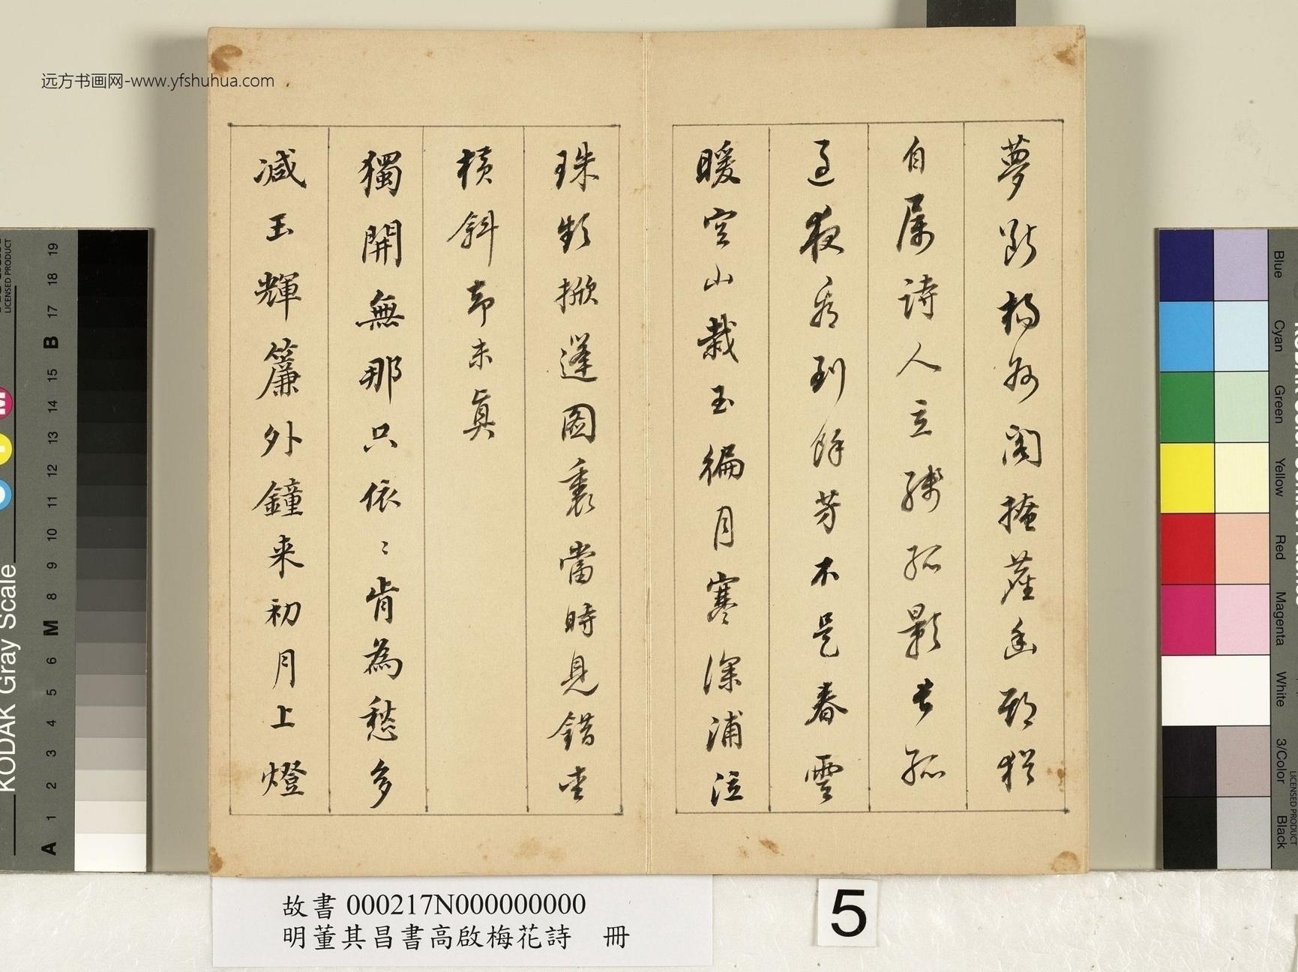 远方书画网-www.yfshuhua.com
夢斷揚州閣掩塵幽期猶
自屬詩人立殘孤影長孤
過夜看到餘芳不是春雲
暖空山栽玉徧月寒深浦泣
珠頻掀篷圖裏當時見錯
橫斜却未真
獨開無那只依〻肯為愁多
減玉輝簾外鐘来初月上燈
故書 000217N000000000
明董其昌書高啟梅花詩 冊
5
KODAK Gray Scale
LICENSED PRODUCT
A 1 2 3 4 5 6 M 8 9 10 11 12 13 14 15 B 17 18 19
Blue
Cyan
Green
Yellow
Red
Magenta
White
3/Color
Black
LICENSED PRODUCT